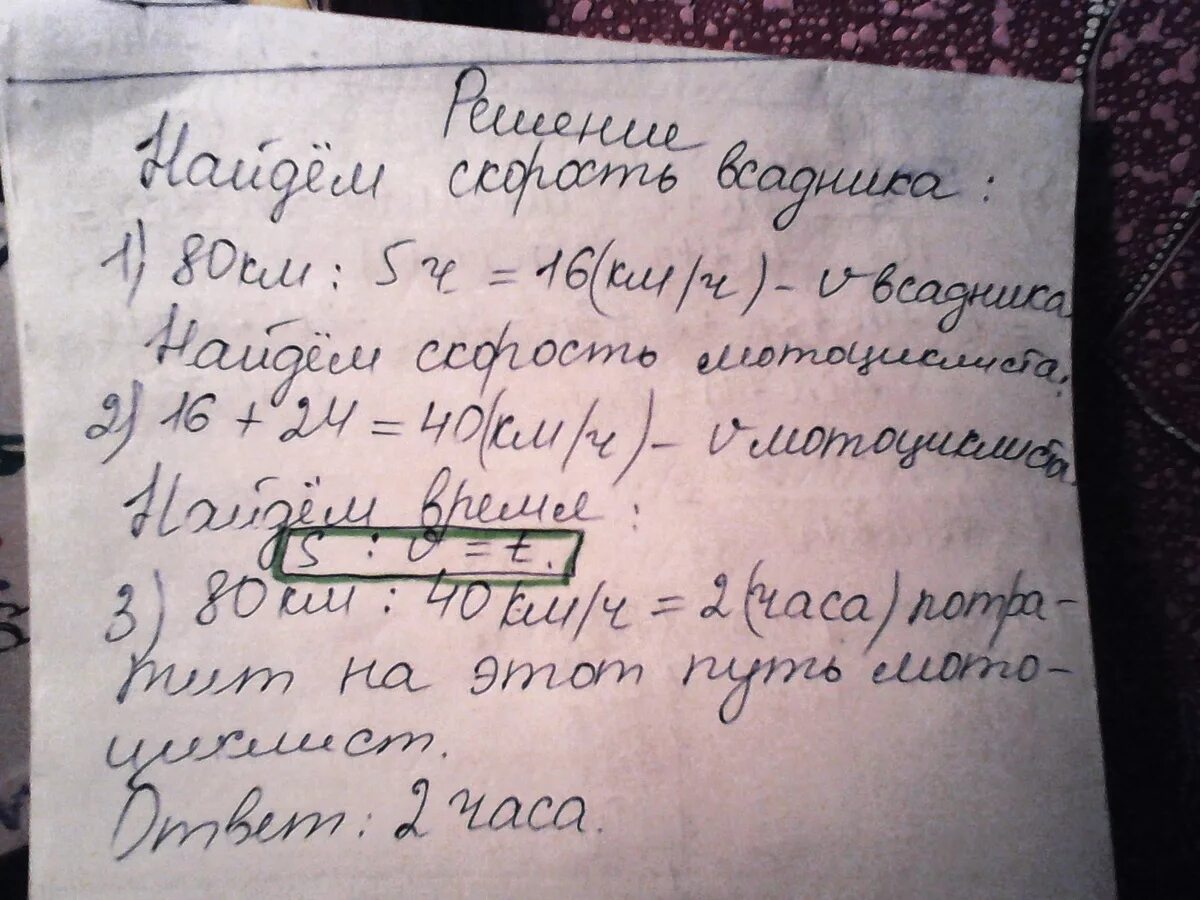 Решение
Найдём скорость всадника:
1) 80км : 5ч = 16(км/ч) – v всадника
Найдём скорость мотоциклиста:
2) 16 + 24 = 40(км/ч) – v мотоциклиста
Найдём время:
S : v = t.
3) 80км : 40км/ч = 2(часа) потра-
тит на этот путь мото-
циклист.
Ответ: 2 часа.